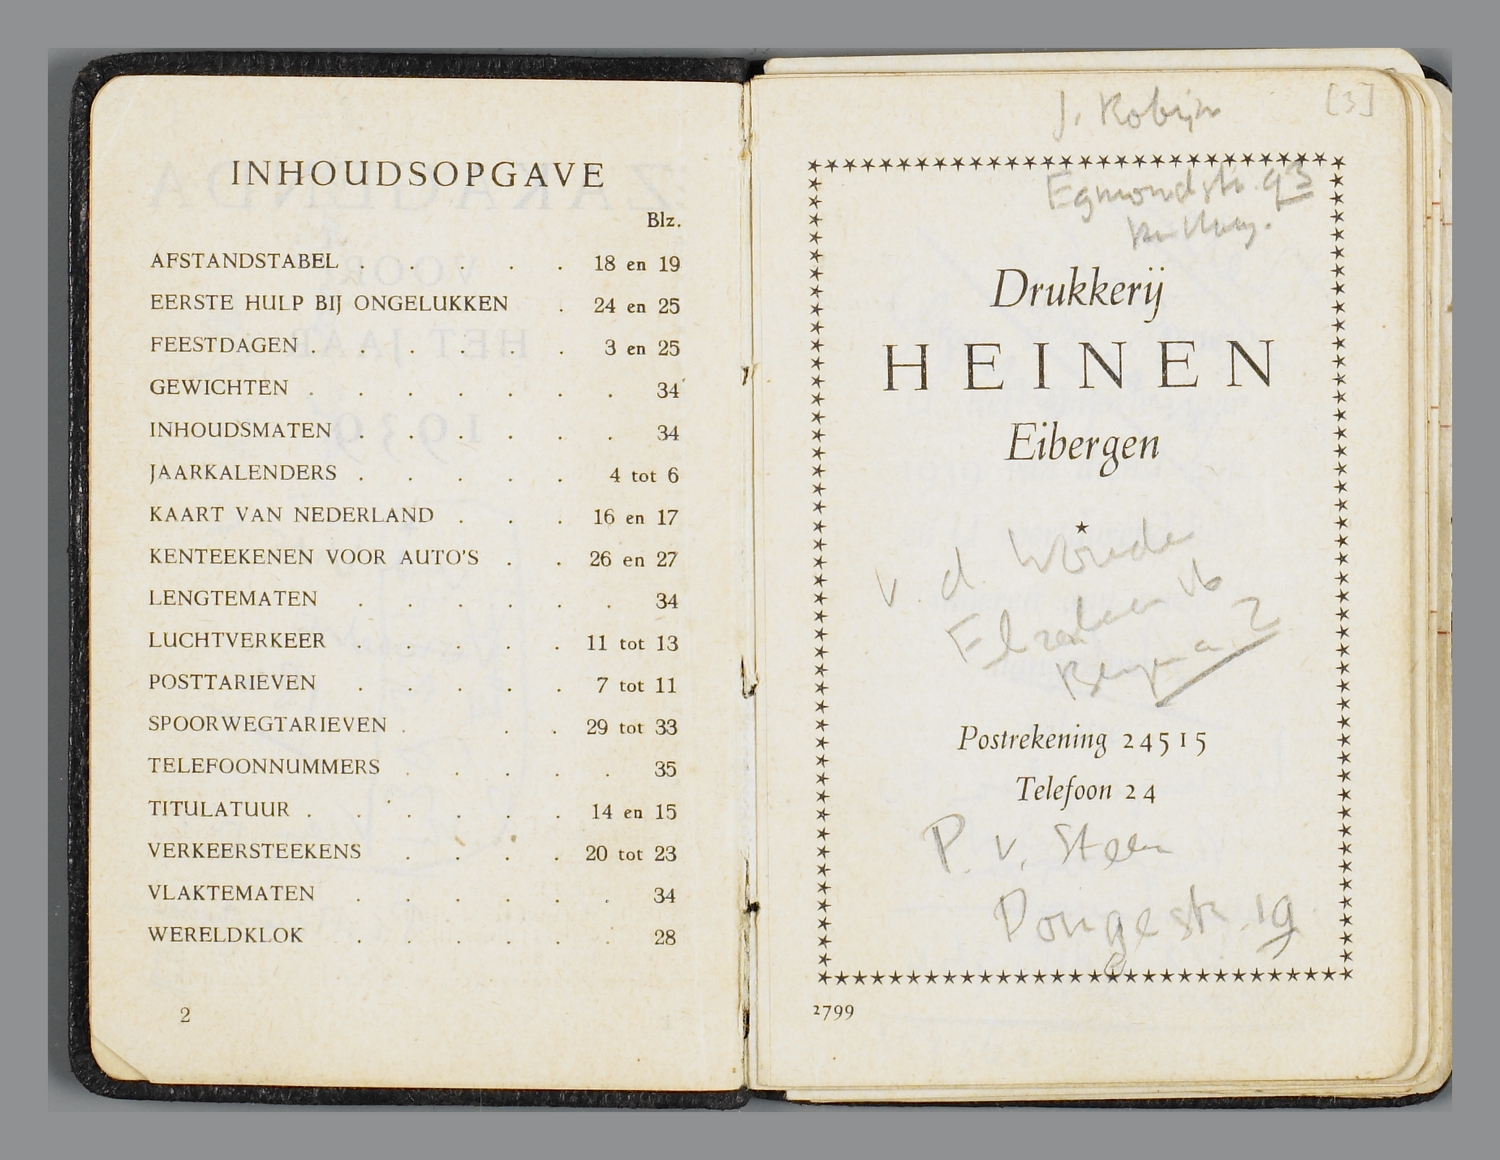 INHOUDSOPGAVE
Blz.
AFSTANDSTABEL . . . . . 18 en 19
EERSTE HULP BIJ ONGELUKKEN . 24 en 25
FEESTDAGEN . . . . . . 3 en 25
GEWICHTEN . . . . . . . 34
INHOUDSMATEN . . . . . . 34
JAARKALENDERS . . . . . 4 tot 6
KAART VAN NEDERLAND . . . 16 en 17
KENTEEKENEN VOOR AUTO'S . . 26 en 27
LENGTEMATEN . . . . . . 34
LUCHTVERKEER . . . . . 11 tot 13
POSTTARIEVEN . . . . . 7 tot 11
SPOORWEGTARIEVEN . . . 29 tot 33
TELEFOONNUMMERS . . . . . 35
TITULATUUR . . . . . . 14 en 15
VERKEERSTEEKENS . . . . 20 tot 23
VLAKTEMATEN . . . . . . 34
WERELDKLOK . . . . . . 28
2
[3]
J. Robijn
Egmondstr. 93
Drukkerij
HEINEN
Eibergen
v. d.
Postrekening 24515
Telefoon 24
P. v. Steen
Dongestr. 19
2799